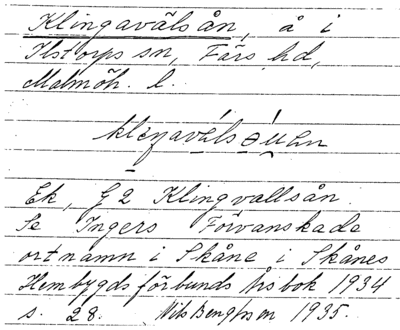 Klingavälsån, å i
Ilstorps sn, Färs hd,
Malmöh. l.
Ek, G2 Klingvallsån
Se Ingers Förvanskade
ortnamn i Skåne i Skånes
Hembygdsförbunds Årsbok 1934
s. 28. Nils Bengtsson 1935.